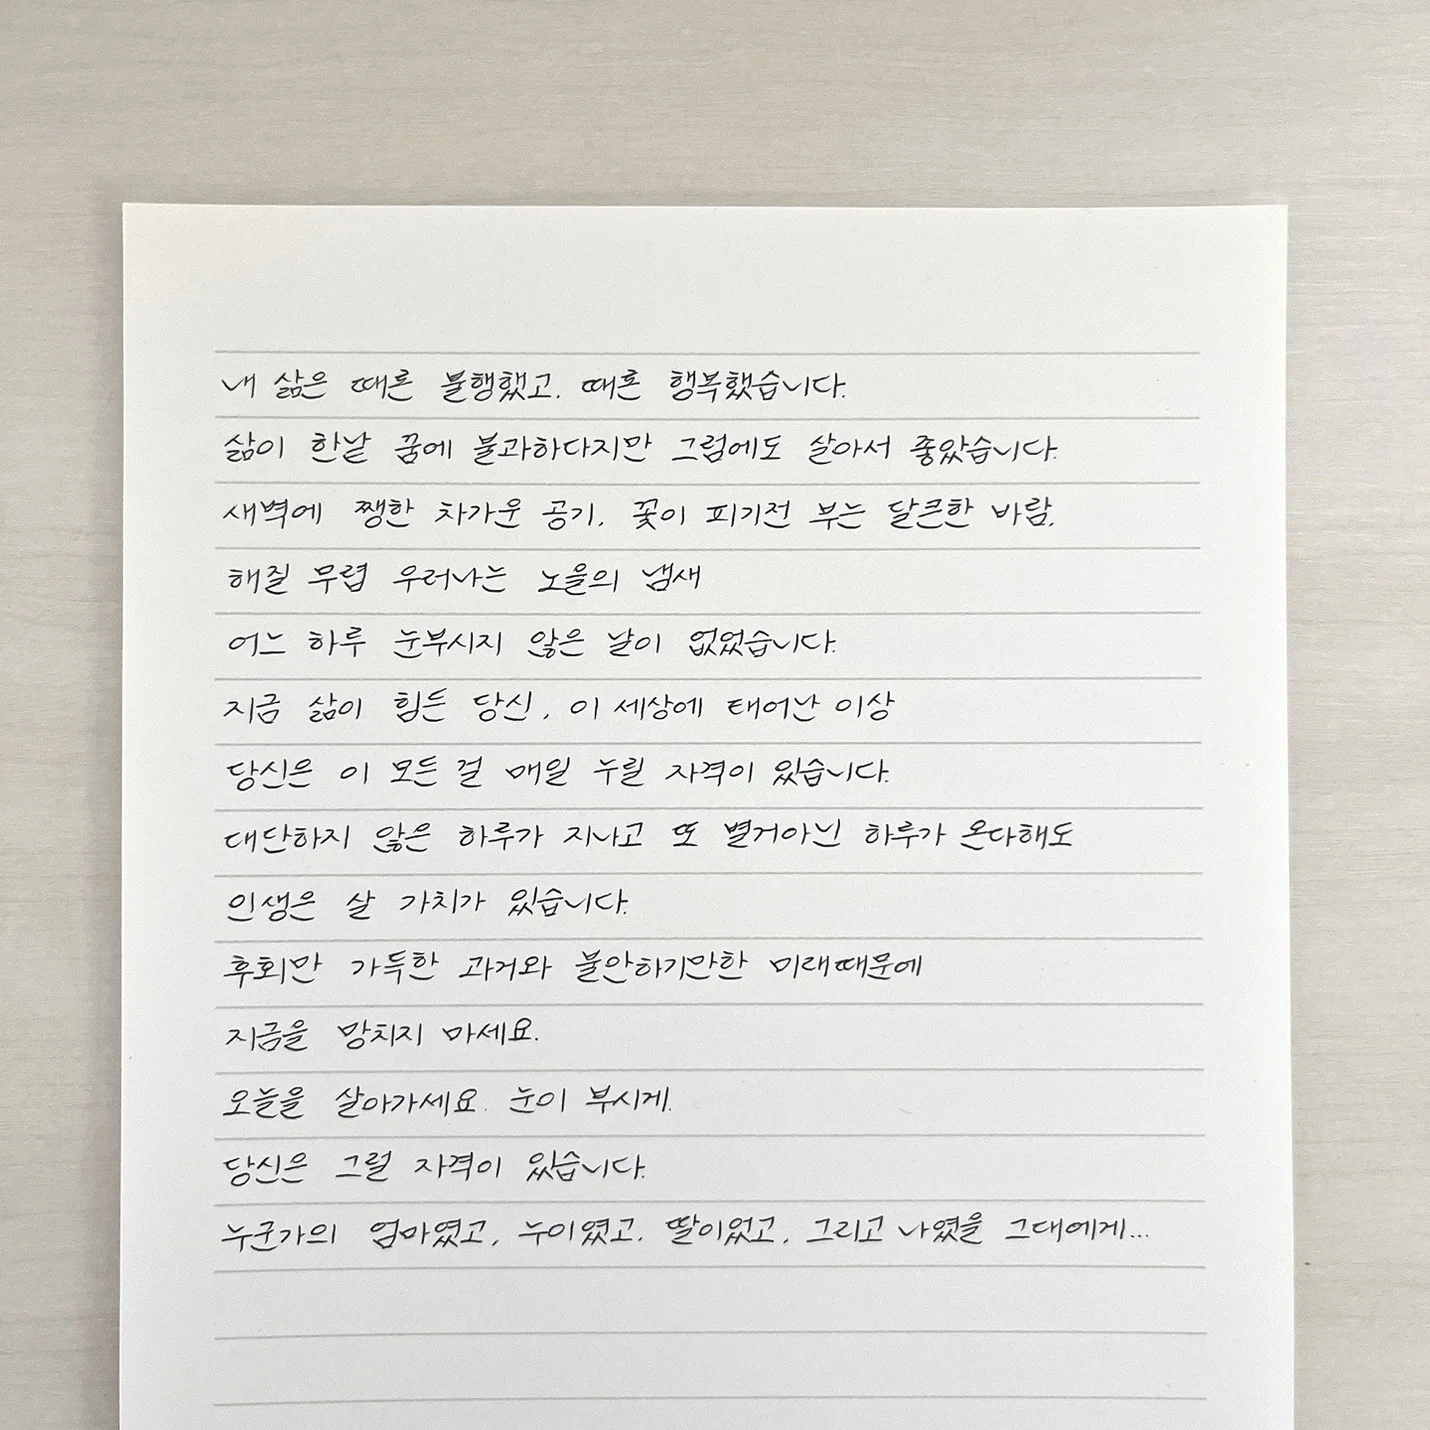 내 삶은 때론 불행했고. 때론 행복했습니다.
삶이 한낱 꿈에 불과하다지만 그럼에도 살아서 좋았습니다.
새벽에 쨍한 차가운 공기, 꽃이 피기전 부는 달큰한 바람,
해질 무렵 우러나는 노을의 냄새
어느 하루 눈부시지 않은 날이 없었습니다.
지금 삶이 힘든 당신, 이 세상에 태어난 이상
당신은 이 모든 걸 매일 누릴 자격이 있습니다.
대단하지 않은 하루가 지나고 또 별거아닌 하루가 온다해도
인생은 살 가치가 있습니다.
후회만 가득한 과거와 불안하기만한 미래때문에
지금을 망치지 마세요.
오늘을 살아가세요. 눈이 부시게.
당신은 그럴 자격이 있습니다.
누군가의 엄마였고, 누이였고. 딸이었고, 그리고 나였을 그대에게...